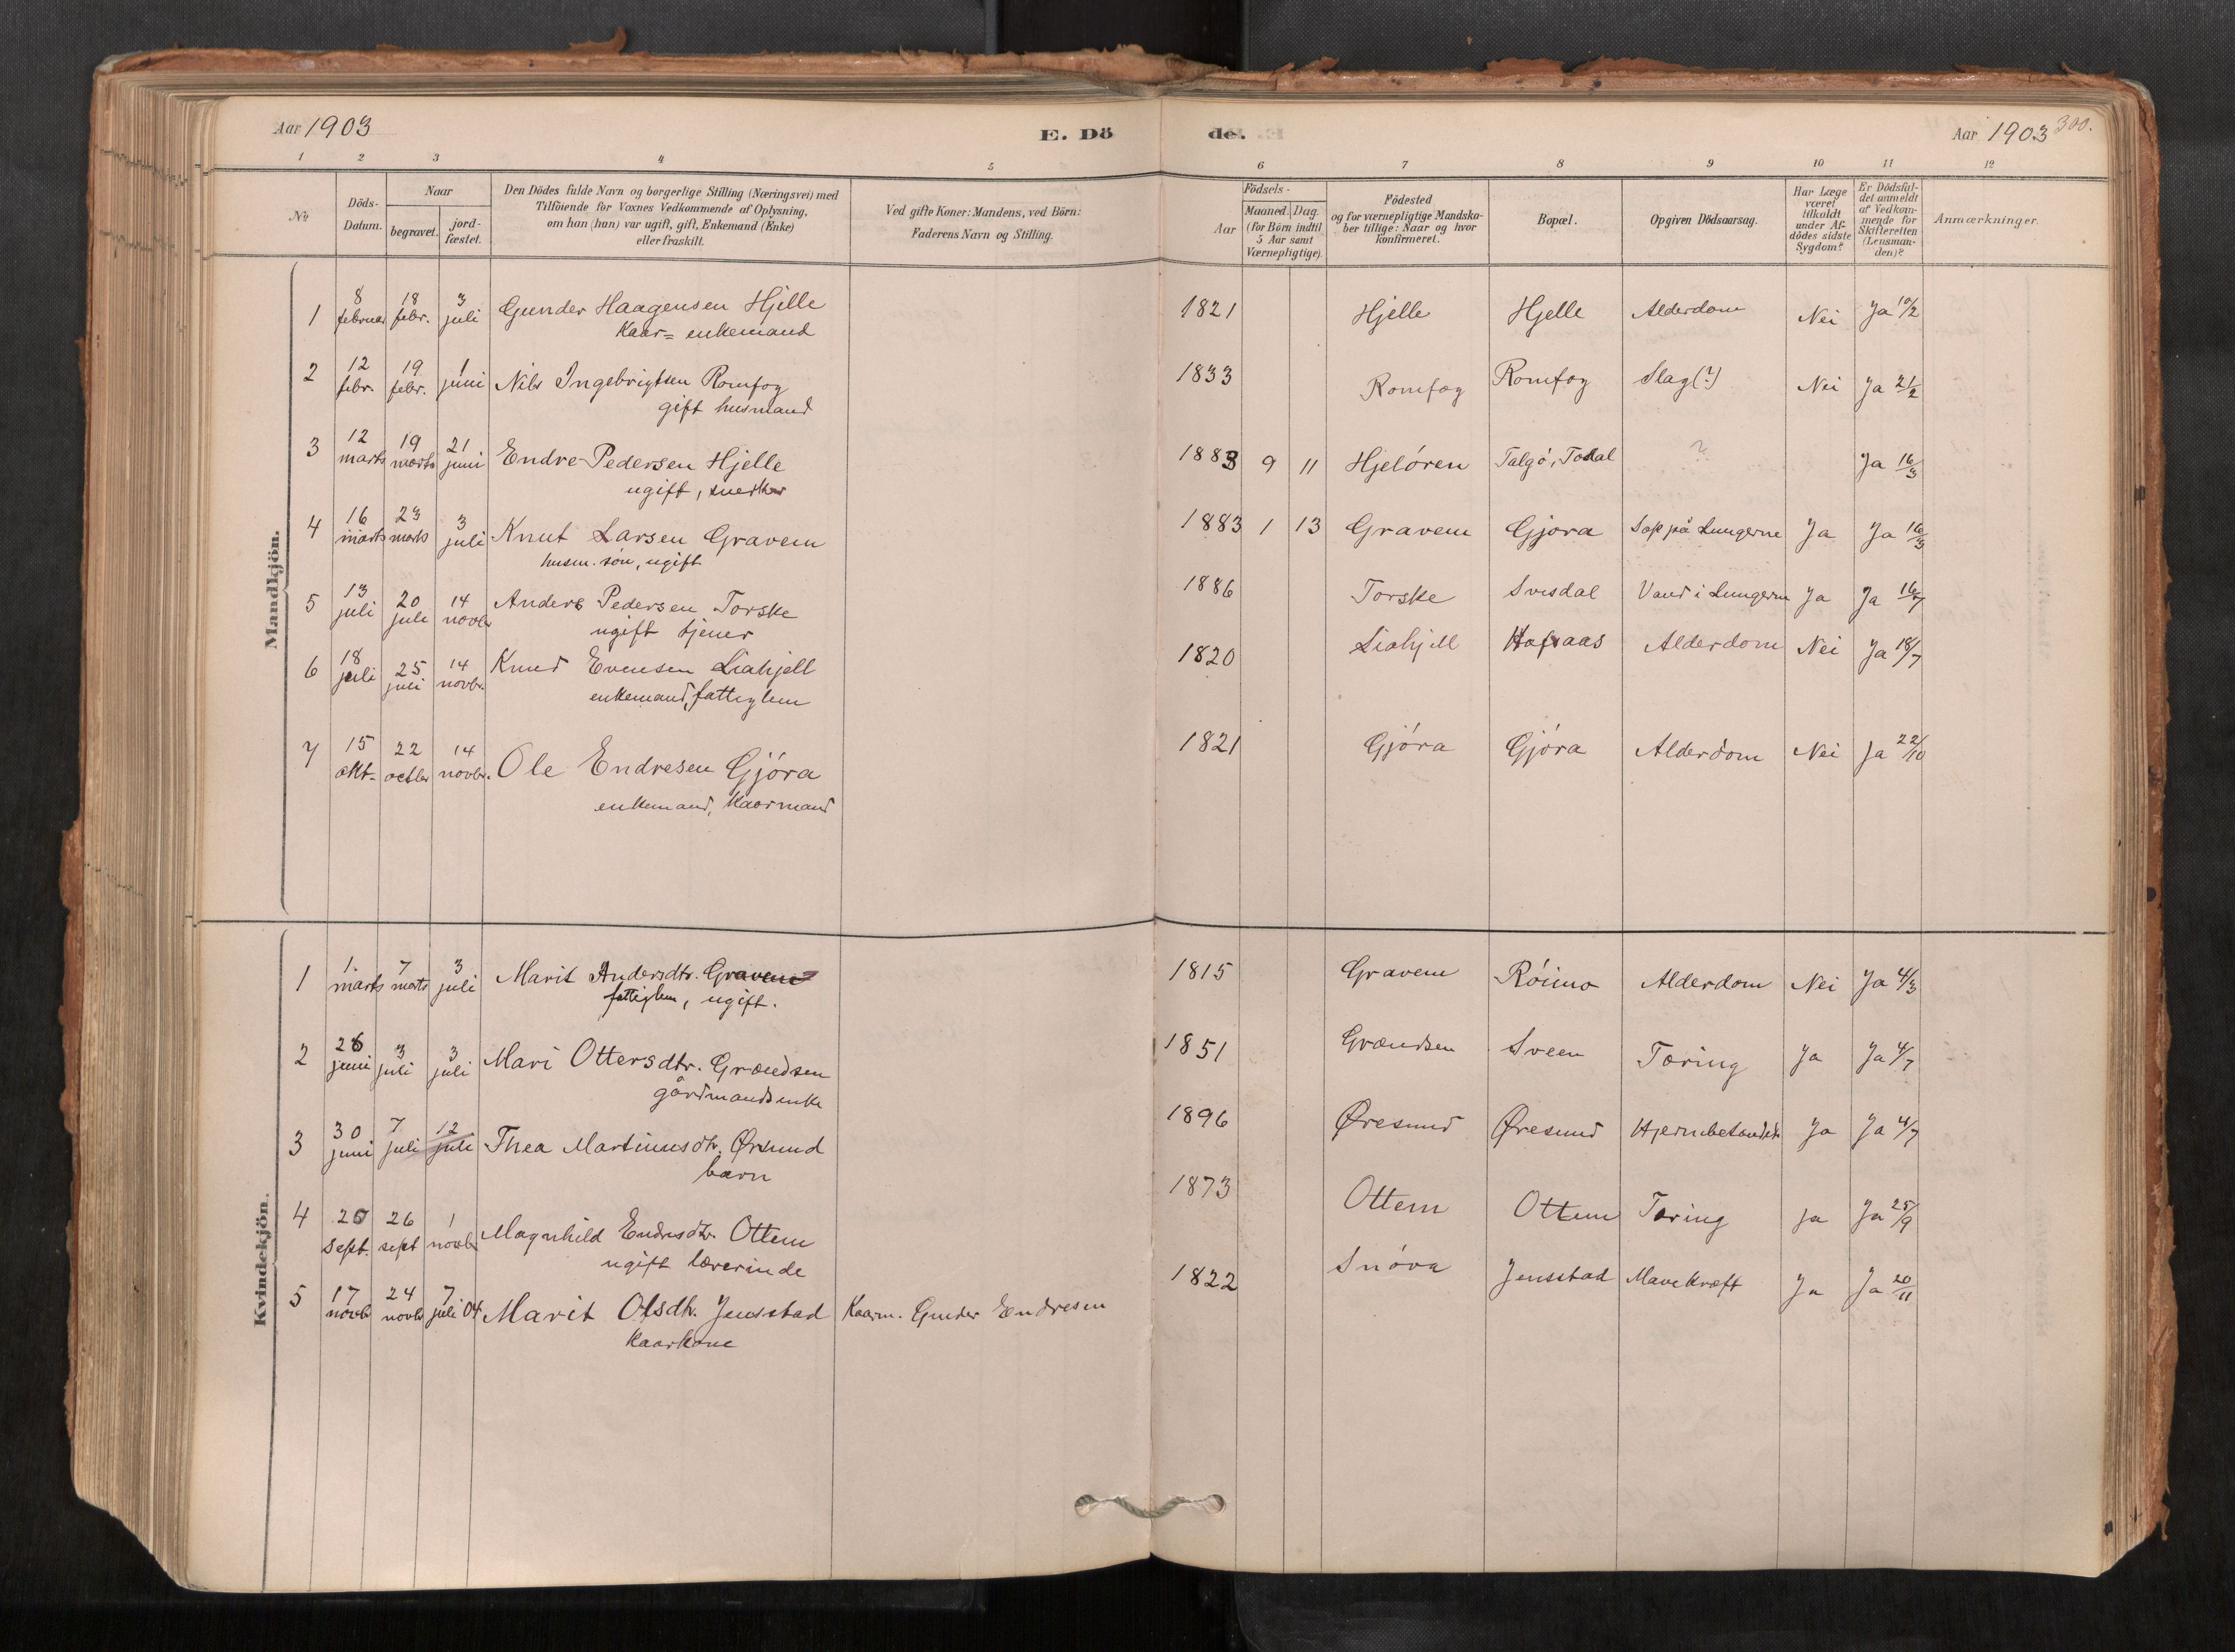 Aar 1903
E. Dö
de.
Aar 1903
300.
1 2 3 4 5 6 7 8 9 10 11 12
No
Döds-Datum.
Naar
begravet.
jord-fæstet.
Den Dödes fulde Navn og borgerlige Stilling (Næringsvei) med
Tilföiende for Voxnes Vedkommende af Oplysning,
om han (hun) var ugift, gift, Enkemand (Enke)
eller fraskilt.
Ved gifte Koner: Mandens, ved Börn:
Faderens Navn og Stilling.
Födsels-
Aar
Maaned. Dag.
(for Börn indtil
5 Aar samt
Værnepligtige)
Födested
og for værnepligtige Mandska-
ber tillige: Naar og hvor
konfirmeret.
Bopæl.
Opgiven Dödsaarsag.
Har Læge
været
tilkaldt
under Af-
dödes sidste
Sygdom?
Er Dödsfal-
det anmeldt
af Vedkom-
mende for
Skifteretten
(Lensman-
den)?
Anmærkninger.
Mandkjön.
1 8 februar 18 febr. 3 juli Gunder Haagensen Hjelle 1821 Hjelle Hjelle Alderdom Nei Ja 10/2
Kaar= enkemand
2 12 febr. 19 febr. 1 juni Nils Ingebrigtsen Romfog 1833 Romfog Romfog Slag(?) Nei Ja 21/2
gift husmand
3 12 marts 19 marts 21 juni Endre Pedersen Hjelle 1883 9 11 Hjelören Talgö, Todal ? Ja 16/3
ugift, snedker
4 16 marts 23 marts 3 juli Knut Larsen Gravem 1883 1 13 Gravem Gjora Sop på Lungerne Ja Ja 16/3
husm. sön, ugift
5 13 juli 20 juli 14 novbr Anders Pedersen Torske 1886 Torske Svisdal Vand i Lungerne Ja Ja 16/7
ugift tjener
6 18 juli 25 juli 14 novbr. Knud Evensen Liahjell 1820 Liahjell Hafsaas Alderdom Nei Ja 18/7
enkemand, fattiglem
7 15 okt. 22 octbr 14 novbr. Ole Endresen Gjóra 1821 Gjóra Gjóra Alderdom Nei Ja 22/10
enkemand, Kaarmand
Kvindekjön.
1 1. marts 7 marts 3 juli Marit Andersdtr. Gravem 1815 Gravem Róimo Alderdom Nei Ja 4/3
fattiglem, ugift.
2 26 juni 3 juli 3 juli Mari Ottersdtr. Grændsen 1851 Grændsen Sveen Tæring Ja Ja 4/7
gårdmandsenke
3 30 juni 7 juli 12 juli Thea Martinusdtr. Øresund 1896 Øresund Øresund Hjernebetændelse Ja Ja 4/7
barn
4 20 Sept. 26 sept 1 novbr Magnhild Endresdtr. Ottem 1873 Ottem Ottem Tæring Ja Ja 25/9
ugift lærerinde
5 17 novbr 24 novbr 7 juli 04 Marit Olsdtr. Jensstad Kaarm. Gunder Endresen 1822 Snóva Jensstad Mavekræft Ja Ja 20/11
Kaarkone